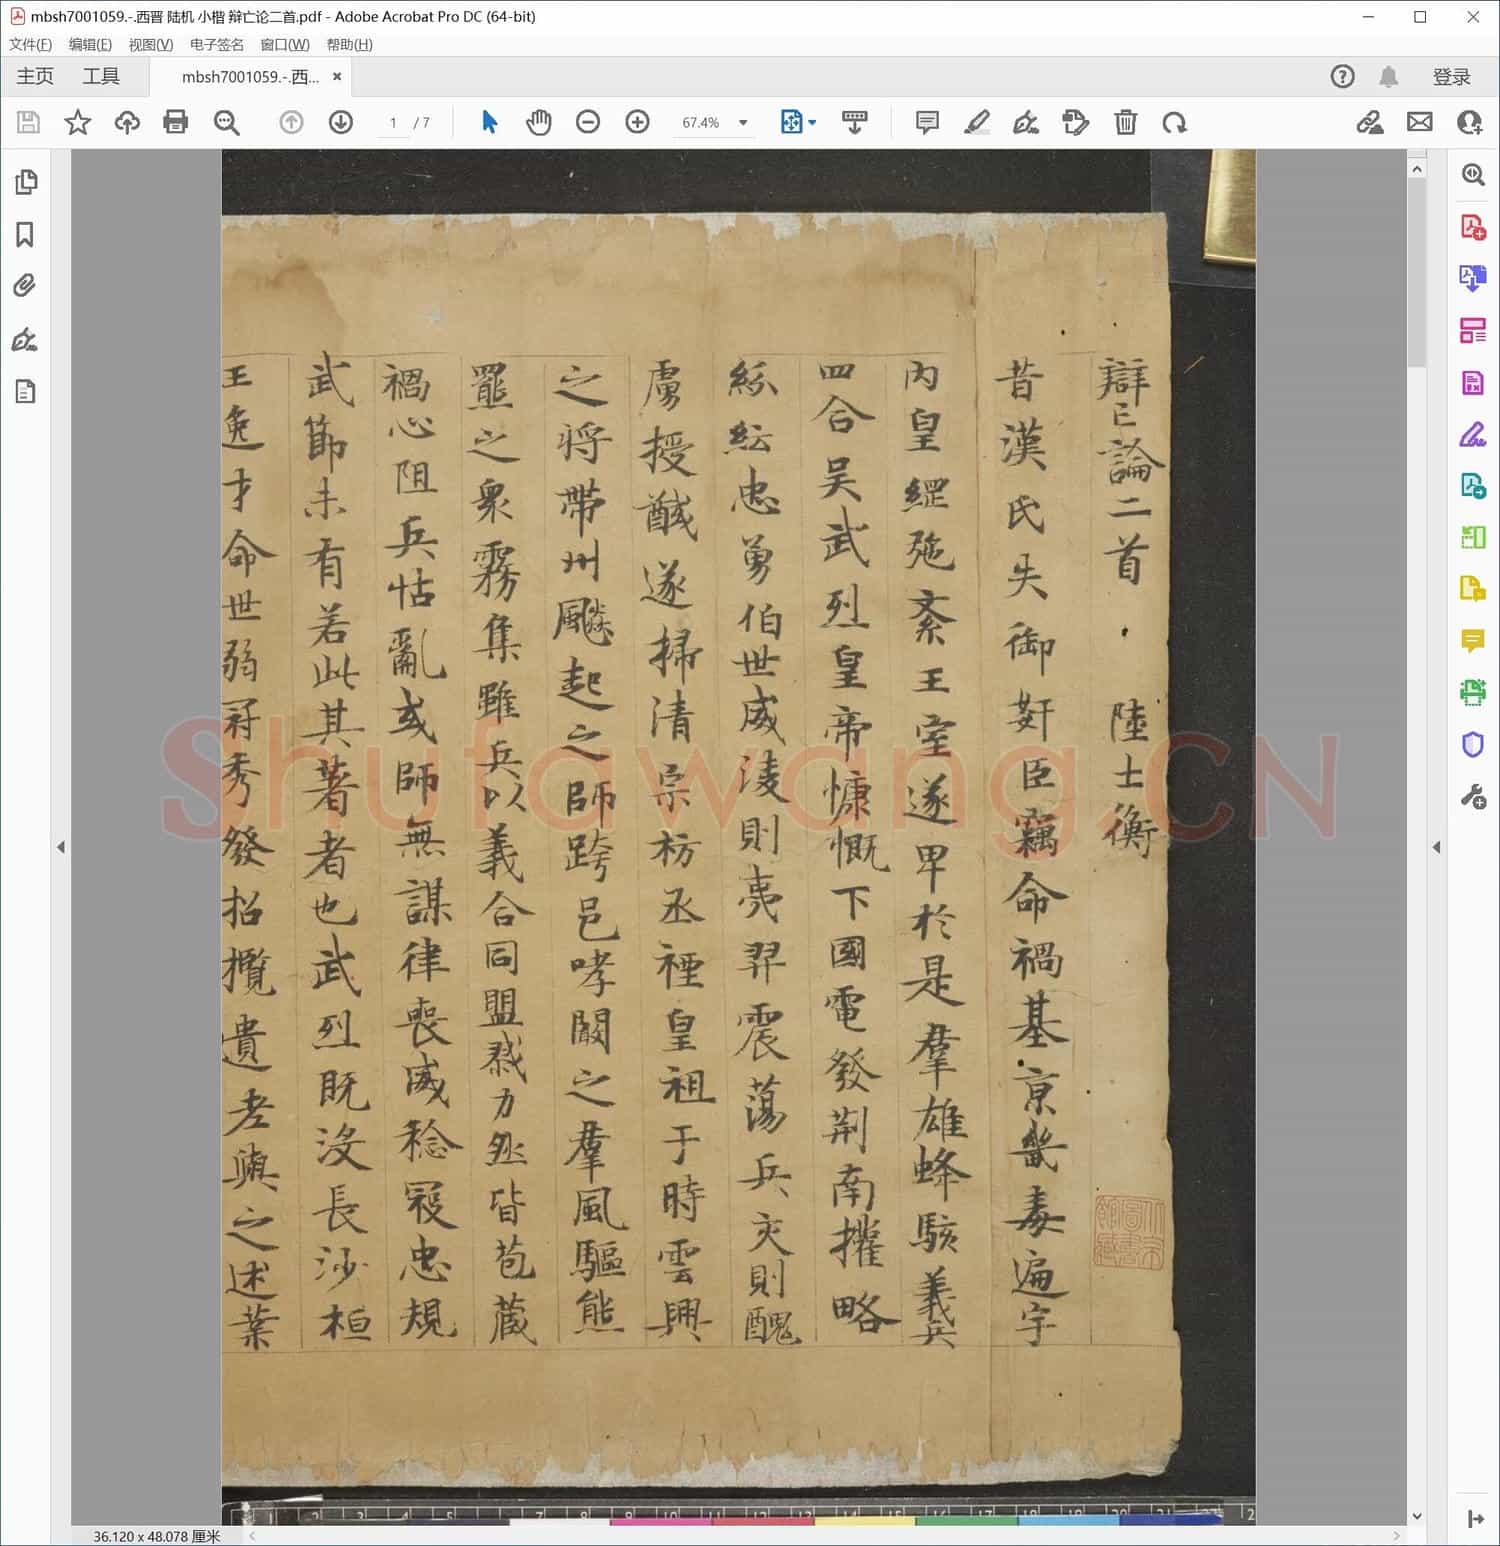 mbsh7001059.-.西晋 陆机 小楷 辩亡论二首.pdf - Adobe Acrobat Pro DC (64-bit)
文件(F) 编辑(E) 视图(V) 电子签名 窗口(W) 帮助(H)
主页 工具 mbsh7001059.-.西... × 登录
1 / 7 67.4%
辯亡論二首 陸士衡
昔漢氏失御奸臣竊命禍基京畿毒遍宇
内皇綱弛紊王室遂卑於是羣雄蜂駭義兵
四合吴武烈皇帝慷慨下國電發荆南攉略
紛紜忠勇伯世威淩則夷羿震蕩兵交則醜
虜授馘遂掃清宗祊丞禋皇祖于時雲興
之将帶州飈起之師跨邑哮闞之羣風驅熊
羆之衆霧集雖兵以義合同盟勠力然皆苞藏
禍心阻兵怙亂或師無謀律喪威稔寇忠規
武節未有若此其著者也武烈既没長沙桓
王逸才命世弱冠秀發招攬遺老與之述業
Shufawang.CN
1 2 3 4 5 7 8 9 10 11 12 13 14 15 16 17 18 19 20 21 22
36.120 x 48.078 厘米